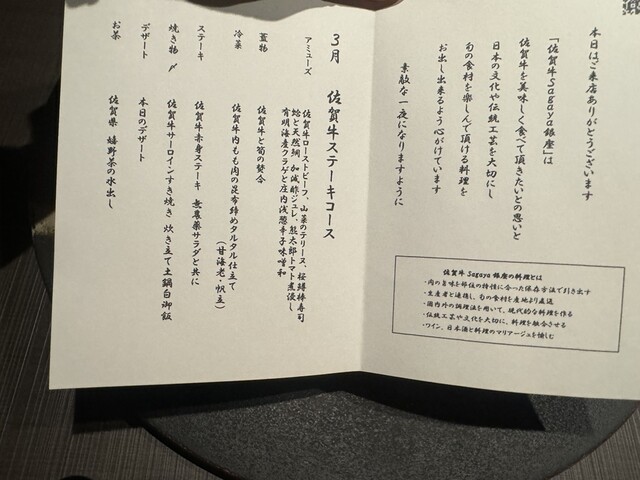 本日はご来店ありがとうございます
「佐賀牛Sagaya銀座」は
佐賀牛を美味しく食べて頂きたいとの思いと
日本の文化や伝統工芸を大切にし
旬の食材を楽しんで頂ける料理を
お出し出来るよう心がけています
素敵な一夜になりますように
佐賀牛 Sagaya 銀座の料理とは
・肉の旨味を部位の特性に合った保存方法で引き出す
・生産者と連携し、旬の食材を産地より直送
・国内外の調理法を用いて、現代的な料理を作る
・伝統工芸や文化を大切に、料理を融合させる
・ワイン、日本酒と料理のマリアージュを愉しむ
3月 佐賀牛ステーキコース
アミューズ
佐賀牛ローストビーフ、山菜のテリーヌ、桜鱒棒寿司
蛤と天然鯛 加減酢ジュレ、熊太郎トマト煮浸し
有明海産クラゲと庄内浅葱辛子味噌和
蓋物 佐賀牛と筍の鍬合
冷菜 佐賀牛内もも肉の昆布締めタルタル仕立て
(甘海老・帆立)
ステーキ 佐賀牛赤身ステーキ 無農薬サラダと共に
焼き物 〆 佐賀牛サーロインすき焼き 炊き立て土鍋白御飯
デザート 本日のデザート
お茶 佐賀県 嬉野茶の水出し